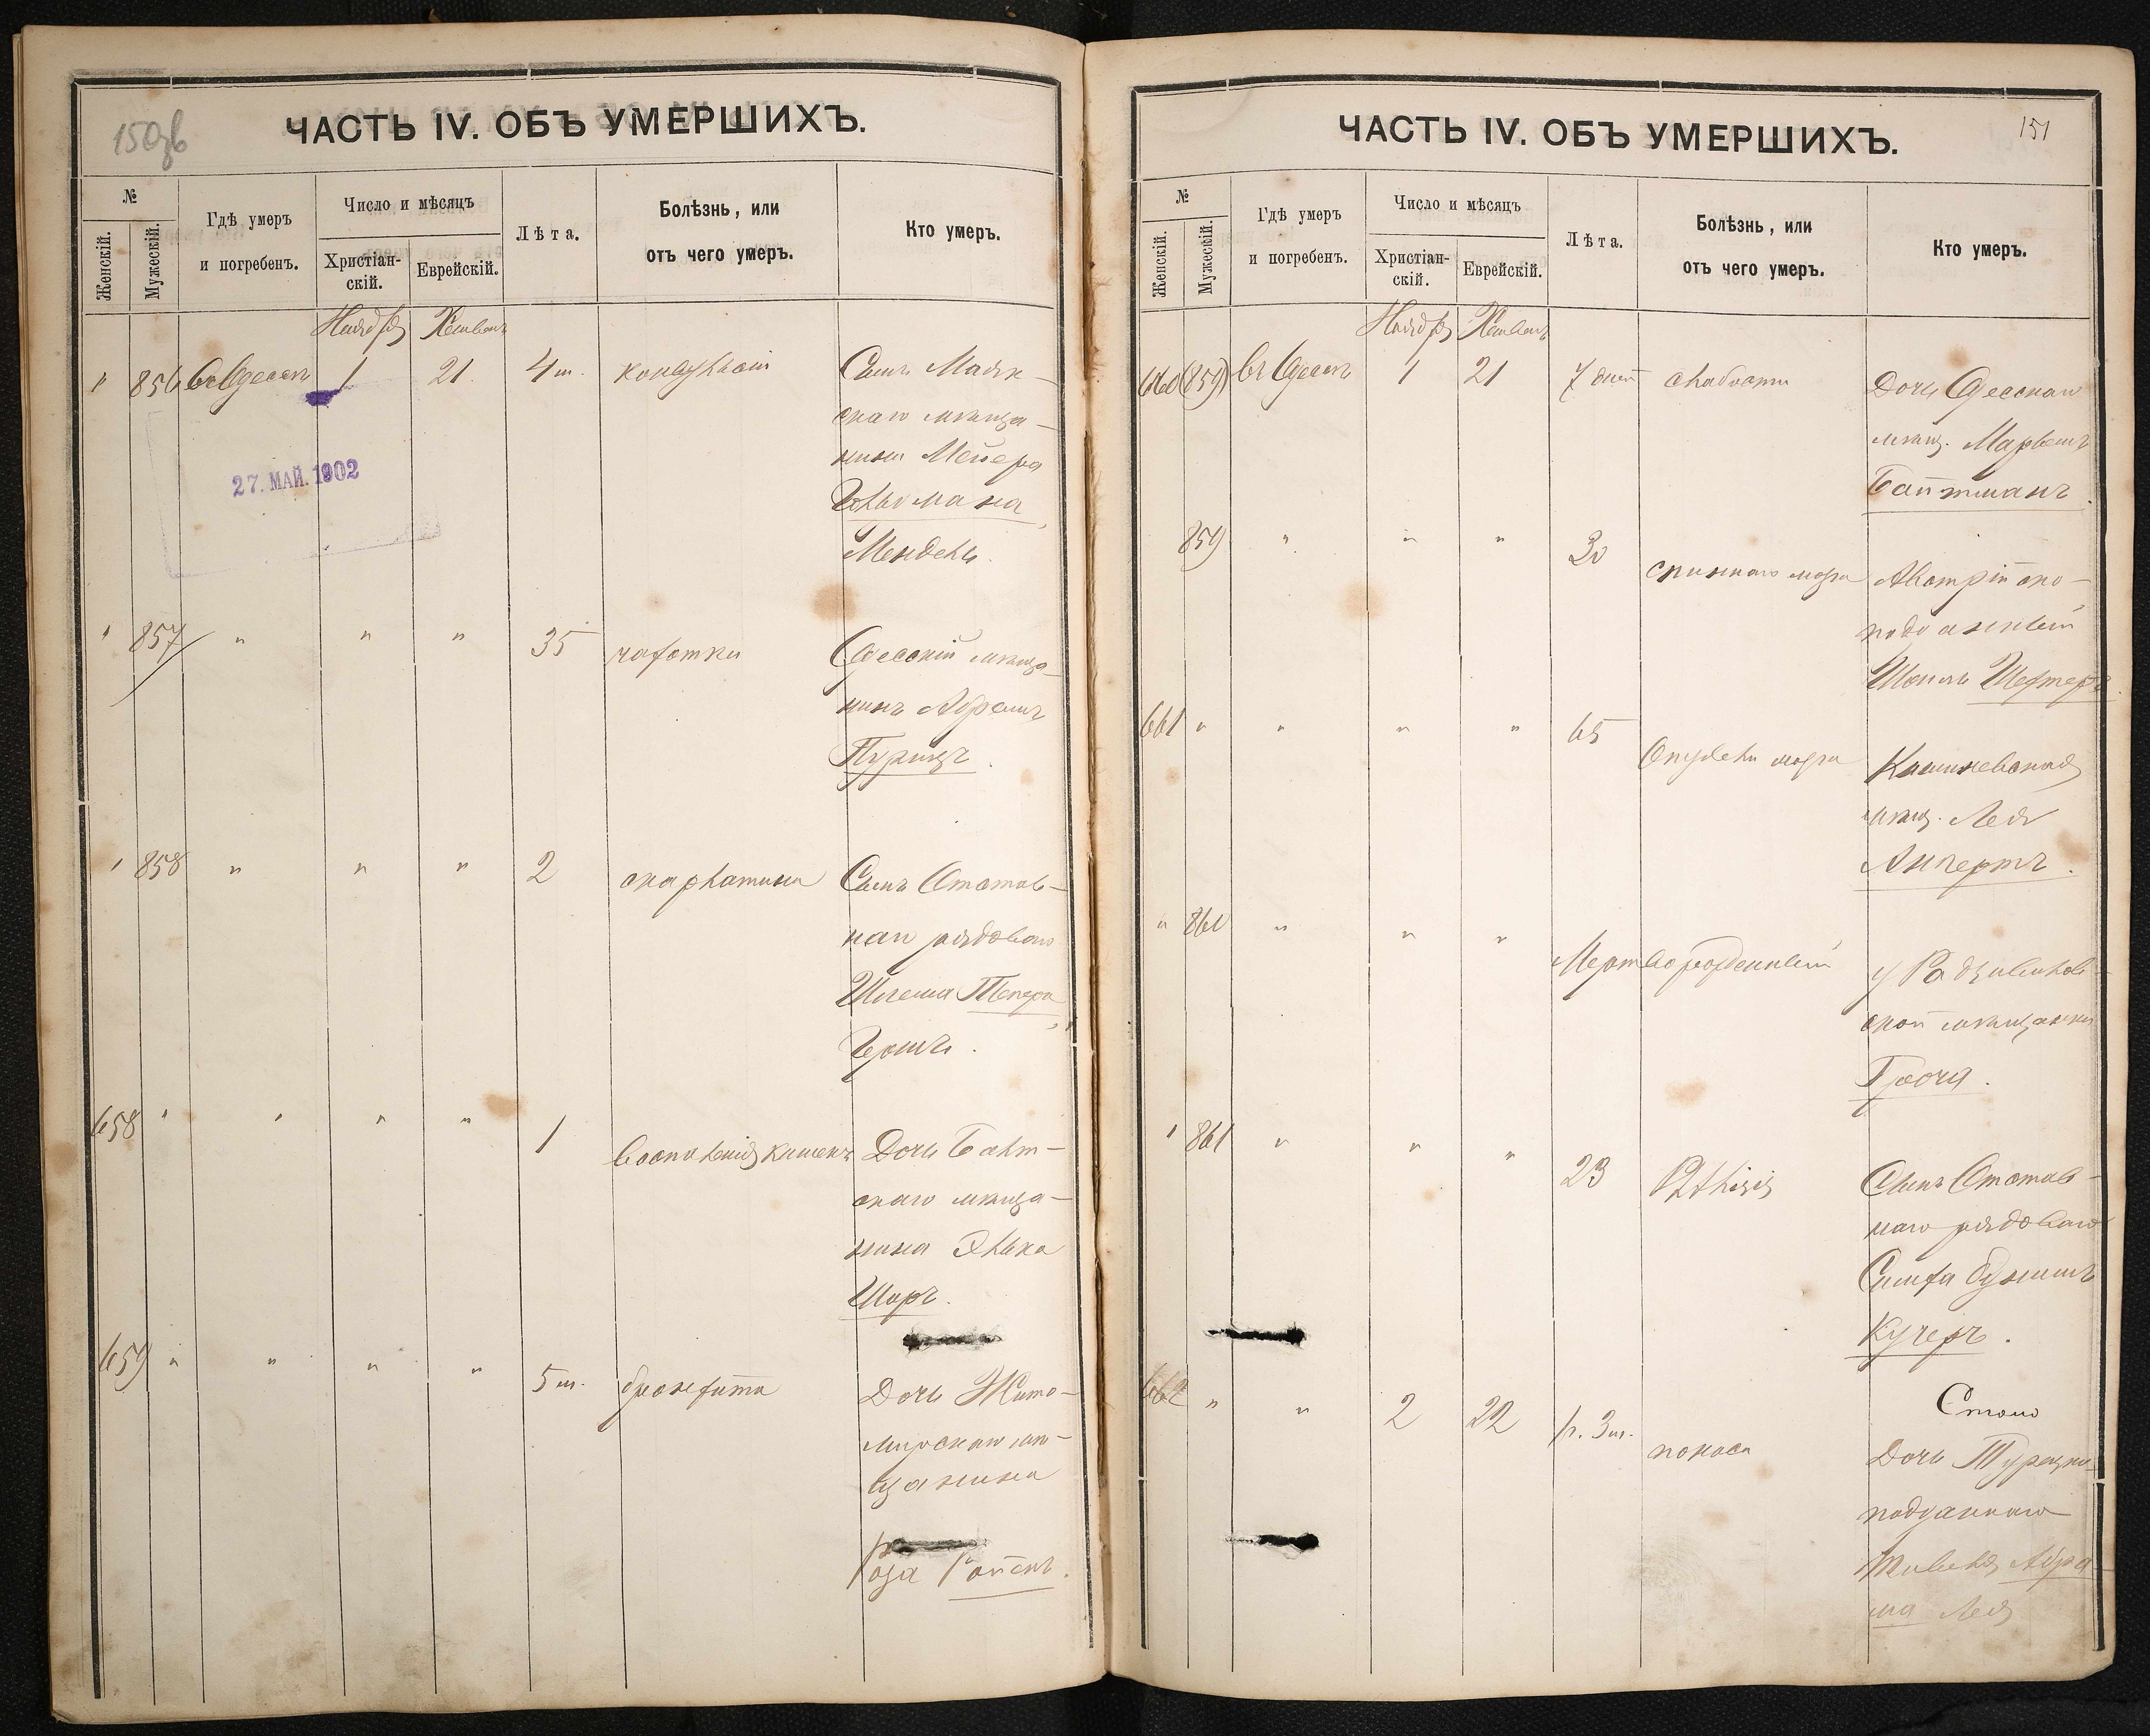 150об
ЧАСТЬ IV. ОБЪ УМЕРШИХЪ.
№
Женскій.
Мужескій.
Гдѣ умеръ
и погребенъ.
Число и мѣсяцъ
Христіан-
скій.
Еврейскій.
Лѣта.
Болѣзнь, или
отъ чего умеръ.
Кто умеръ.
Ноября Хешванъ
" 856 въ Одессѣ 1 21 4 м. конвульсіи Сынъ Маяк-
скаго мѣща-
нина Мейера
Мендель.
27. МАЙ. 1902
" 857 " " " 35 чахотки Одесскій мѣща-
нинъ Абрамъ
Пурицъ.
" 858 " " " 2 скарлатина Сынъ Отстав-
наго рядоваго
Тепера,
Гершъ.
658 " " " " 1 воспаленія кишекъ Дочь Балт-
скаго мѣща-
нина Элька
Шоръ.
659 " " " " 5 м. бронхита Дочь Жито-
мирскаго мѣ-
щанина
Роза
151
ЧАСТЬ IV. ОБЪ УМЕРШИХЪ.
№
Женскій.
Мужескій.
Гдѣ умеръ
и погребенъ.
Число и мѣсяцъ
Христіан-
скій.
Еврейскій.
Лѣта.
Болѣзнь, или
отъ чего умеръ.
Кто умеръ.
Ноября Хешванъ
660 (859) въ Одессѣ 1 21 7 дней слабости Дочь Одесскаго
мѣщ.
859 " " " 30 спиннаго мозга Австрійско-
подданный
661 " " " " 65 Опухоли мозга Кишиневская
мѣщ. Лея
Ляпертъ.
" 860 " " " Мертворожденный у Радзивилов-
ской мѣщанки
" 861 " " " 23 Сынъ Отстав-
наго рядоваго
Кучеръ.
662 " " 2 22 1 г. 3 м. поноса Дочь Турецко-
подданнаго
Абра-
ма Лея